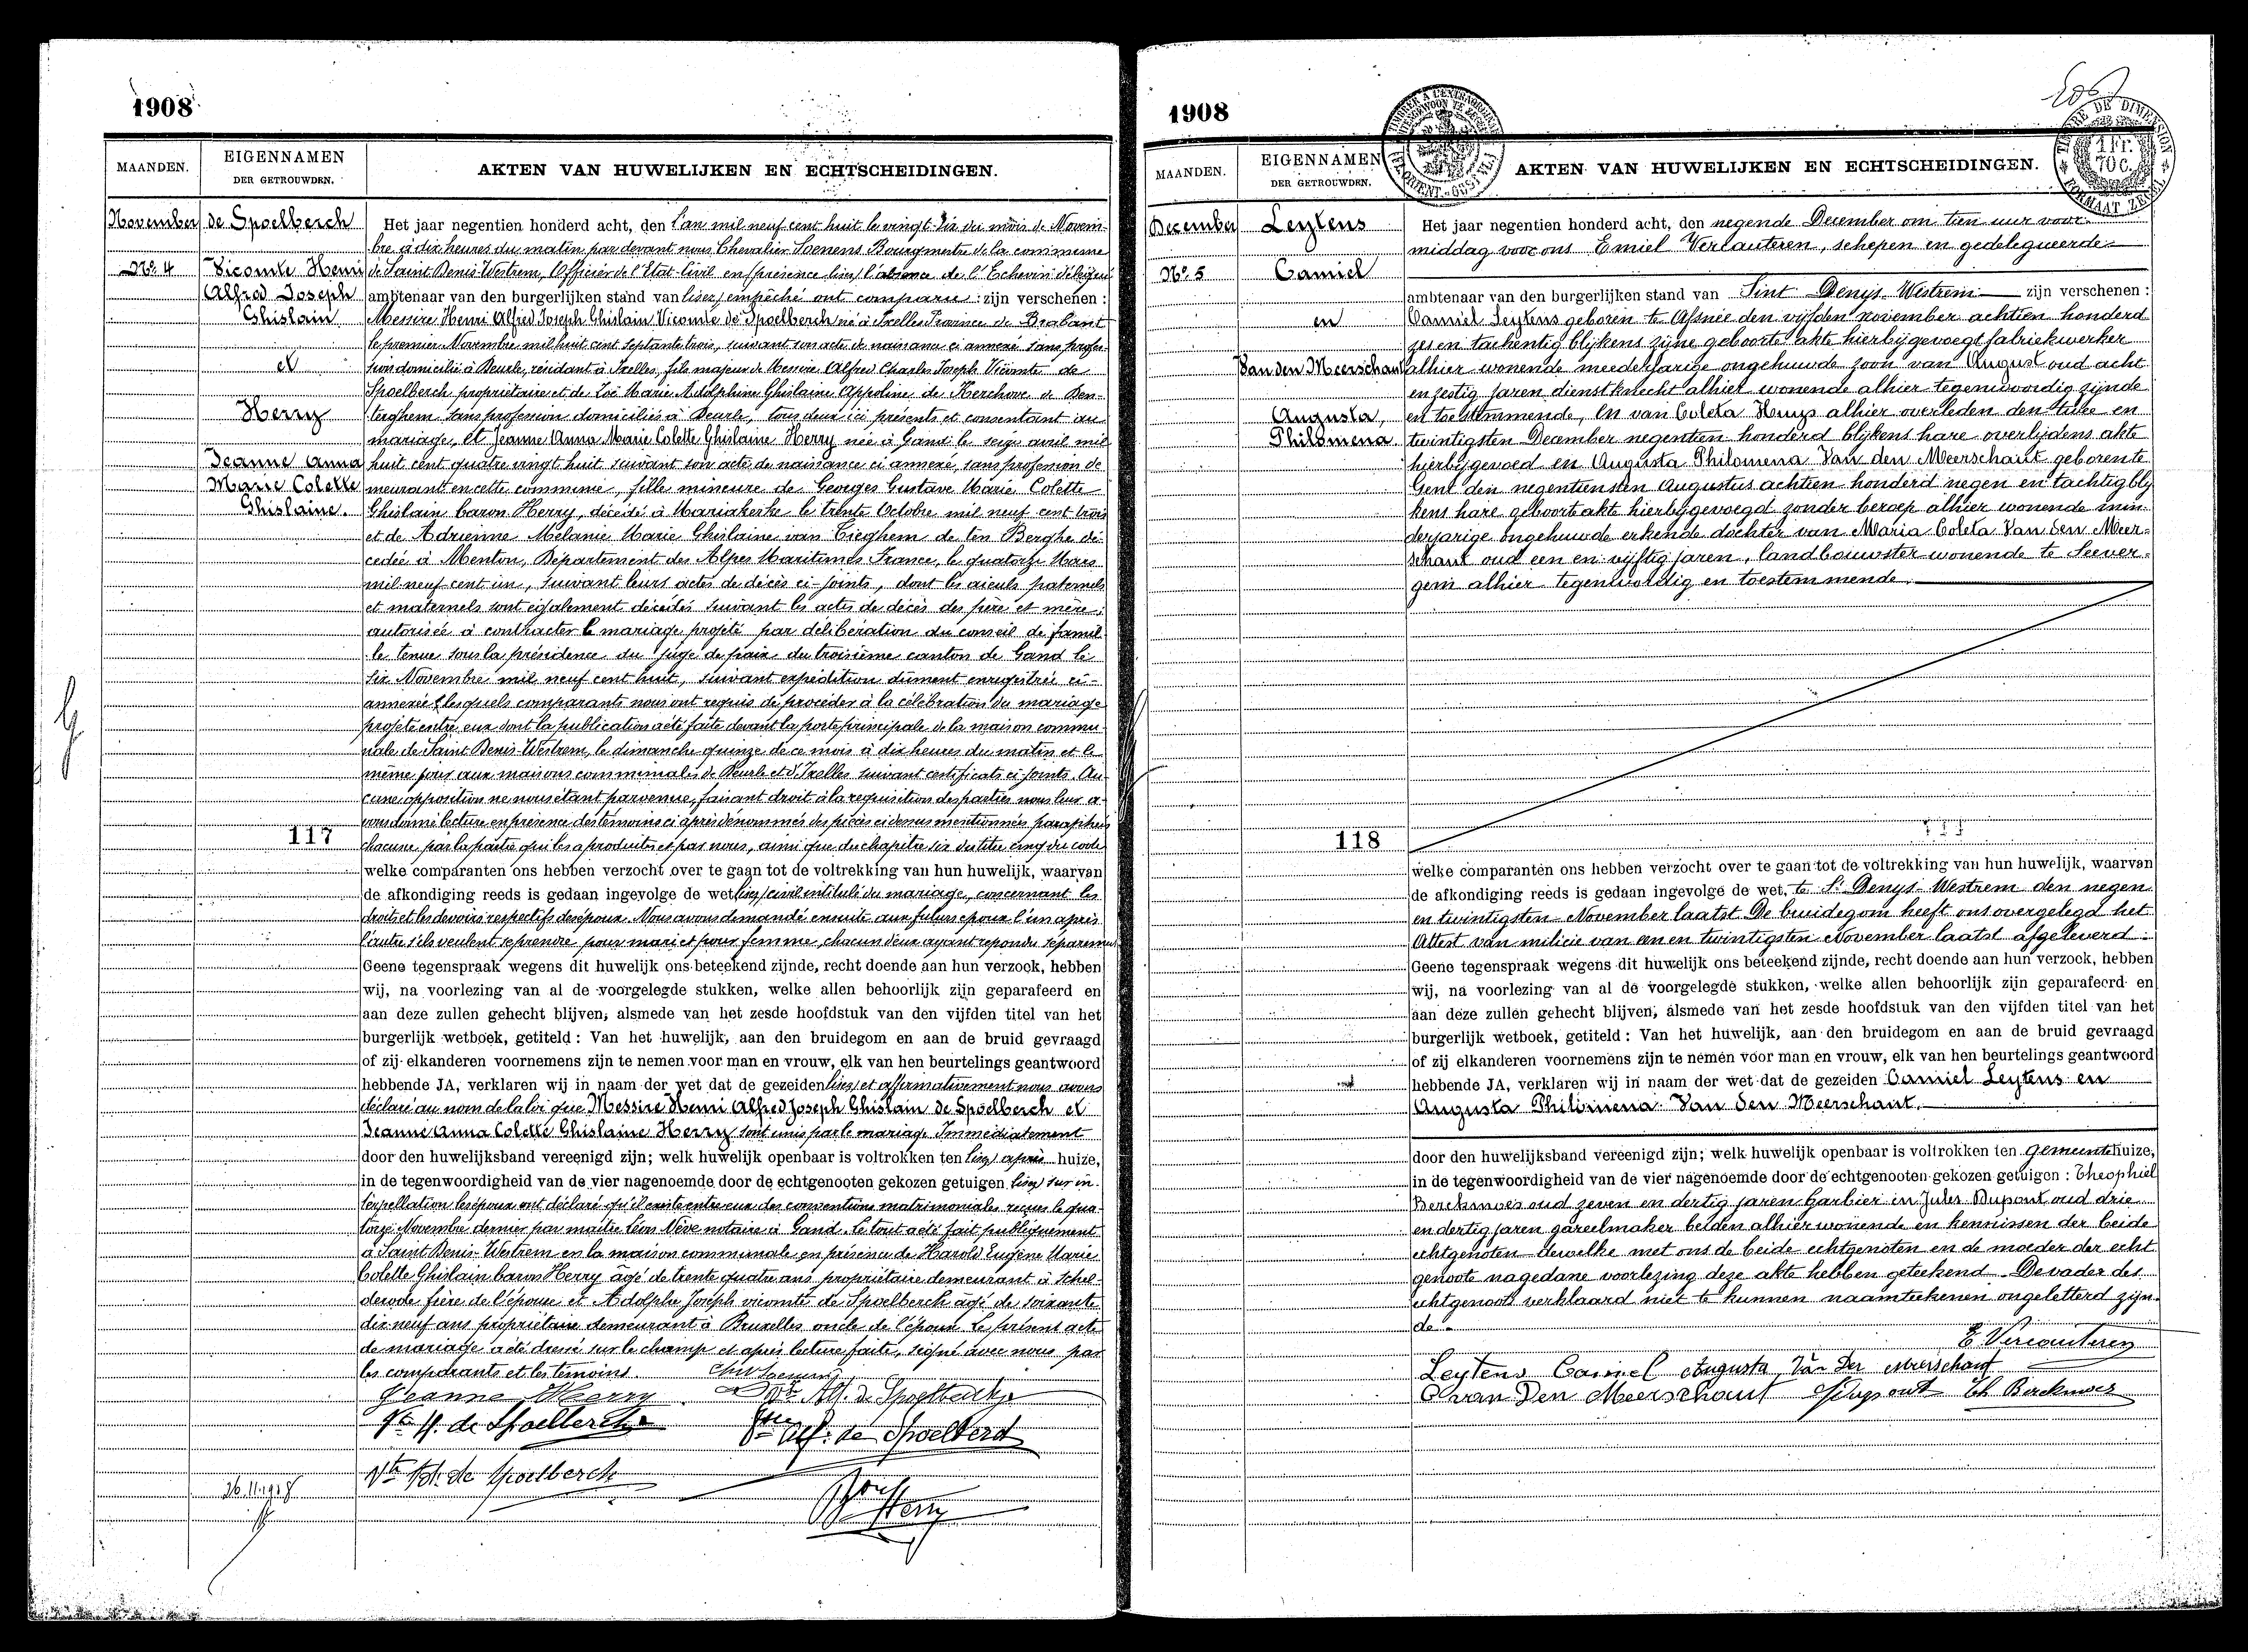 1908
MAANDEN.
EIGENNAMEN
DER GETROUWDEN.
AKTEN VAN HUWELIJKEN EN ECHTSCHEIDINGEN.
November
No. 4
de Spoelberch
Vicomte Henri
Alfred Joseph
Ghislain
et
Herry
Jeanne Anna
Marie Colette
Ghislaine.
117
Het jaar negentien honderd acht, den l'an mil neuf cent huit le vingt-six du mois de Novem-
bre à dix heures du matin, par devant nous Chevalier Soenens Bourgmestre de la commune
de Saint Denis-Westrem, Officier de l'Etat-Civil en présence lisez l'absence de l'Echevin délégué
ambtenaar van den burgerlijken stand van lisez empêché ont comparu: zijn verschenen:
Messire Henri Alfred Joseph Ghislain Vicomte de Spoelberch né à Ixelles Province de Brabant
le premier Novembre mil huit cent septante trois, suivant son acte de naissance ci annexé sans profes-
sion domicilié à Deurle, résidant à Ixelles, fils majeur de Messire Alfred Charles Joseph Vicomte de
Spoelberch propriétaire et de Zoé Marie Adolphine Ghislaine Appoline de Kerchove de Den-
terghem sans profession domiciliés à Deurle, tous deux ici présents et consentant au
mariage, et Jeanne Anna Marie Colette Ghislaine Herry née à Gand le seize avril mil
huit cent quatre vingt huit suivant son acte de naissance ci annexé, sans profession de
meurant en cette commune, fille mineure de Georges Gustave Marie Colette
Ghislain baron Herry, décédé à Mariakerke le trente Octobre mil neuf cent trois
et de Adrienne Mélanie Marie Ghislaine van Tieghem de ten Berghe dé-
cedée à Menton, Département des Alpes Maritimes France, le quatorze Mars
mil neuf cent un, suivant leurs actes de décès ci-joints, dont les aieuls paternels
et maternels sont également décédés suivant les actes de décès des père et mère;
autorisée à contracter le mariage projeté par délibération du conseil de famil-
le tenue sous la présidence du juge de paix du troisième canton de Gand le
six Novembre mil neuf cent huit, suivant expédition dûment enregistrée ci-
annexée; lesquels comparants nous ont requis de procéder à la célébration du mariage
projeté entre eux dont la publication a été faite devant la porte principale de la maison commu-
nale de Saint Denis-Westrem, le dimanche quinze de ce mois à dix heures du matin et le
même jour aux maisons communales de Deurle et d'Ixelles suivant certificats ci joints. Au-
cune opposition ne nous étant parvenue, faisant droit à la requisition des parties nous leur a-
vons donné lecture en présence des témoins ci après dénommés des pièces ci dessus mentionnées paraphées
chacune par la partie qui les a produites et par nous, ainsi que du chapitre six du titre cinq du code
welke comparanten ons hebben verzocht over te gaan tot de voltrekking van hun huwelijk, waarvan
de afkondiging reeds is gedaan ingevolge de wet lisez civil intitulé du mariage, concernant les
droits et les devoirs respectifs des époux. Nous avons demandé ensuite aux futurs époux l'un après
l'autre s'ils veulent se prendre pour mari et pour femme, chacun d'eux ayant répondu séparement
Geene tegenspraak wegens dit huwelijk ons beteekend zijnde, recht doende aan hun verzoek, hebben
wij, na voorlezing van al de voorgelegde stukken, welke allen behoorlijk zijn geparafeerd en
aan deze zullen gehecht blijven, alsmede van het zesde hoofdstuk van den vijfden titel van het
burgerlijk wetboek, getiteld: Van het huwelijk, aan den bruidegom en aan de bruid gevraagd
of zij elkanderen voornemens zijn te nemen voor man en vrouw, elk van hen beurtelings geantwoord
hebbende JA, verklaren wij in naam der wet dat de gezeiden lisez et affirmativement nous avons
déclaré au nom de la loi que Messire Henri Alfred Joseph Ghislain de Spoelberch et
Jeanne Anna Colette Ghislaine Herry sont unis par le mariage Immédiatement
door den huwelijksband vereenigd zijn; welk huwelijk openbaar is voltrokken ten lisez après huize,
in de tegenwoordigheid van de vier nagenoemde door de echtgenooten gekozen getuigen lisez sur in-
terpellation les époux ont déclaré qu'il existe entre eux des conventions matrimoniales reçues le qua-
torze Novembre dernier par maître Léon Nève notaire à Gand. Le tout a été fait publiquement
à Saint Denis-Westrem en la maison communale en présence de Harold Eugène Marie
Colette Ghislain baron Herry âgé de trente quatre ans propriétaire demeurant à Schel-
derode frère de l'épouse et Adolphe Joseph vicomte de Spoelberch âgé de soixante
dix neuf ans propriétaire demeurant à Bruxelles oncle de l'époux. Le présent acte
de mariage a été dressé sur le champ et après lecture faite, signé avec nous par
les comparants et les témoins.
Jeanne Herry
Vte Alf. de Spoelberch
Vte H. de Spoelberch
Alf. de Spoelberch
Vte de Spoelberch
Bon Herry
26.11.1908
1908
MAANDEN.
EIGENNAMEN
DER GETROUWDEN.
AKTEN VAN HUWELIJKEN EN ECHTSCHEIDINGEN.
December
No. 5
Leytens
Camiel
en
Van den Meerschaut
Augusta,
Philomena.
118
Het jaar negentien honderd acht, den negende December om tien uur voor-
middag voor ons Emiel Vercauteren, schepen en gedelegueerde
ambtenaar van den burgerlijken stand van Sint Denys-Westrem zijn verschenen:
Camiel Leytens geboren te Afsnee den vijfden november achtien honderd
zes en tachentig blijkens zijne geboorte akte hierbijgevoegt fabriekwerker
alhier wonende meerderjarige ongehuwde zoon van August oud acht
en zestig jaren dienstknecht alhier wonende alhier tegenwoordig zijnde
en toestemmende, en van Coleta Huys alhier overleden den twee en
twintigsten December negentien honderd blijkens hare overlijdens akte
hierbijgevoed en Augusta Philomena Van den Meerschaut geboren te
Gent den negentiensten Augustus achtien honderd negen en tachtig bly
kens hare geboorte akte hierbijgevoegd zonder beroep alhier wonende min-
derjarige ongehuwde erkende dochter van Maria Coleta Van den Meer-
schaut oud een en vijftig jaren, landbouwster wonende te Seever-
gem alhier tegenwoordig en toestemmende.
welke comparanten ons hebben verzocht over te gaan tot de voltrekking van hun huwelijk, waarvan
de afkondiging reeds is gedaan ingevolge de wet, te St Denys-Westrem den negen
en twintigsten November laatst De bruidegom heeft ons overgelegd het
Attest van milicie van een en twintigsten November laatst afgeleverd.
Geene tegenspraak wegens dit huwelijk ons beteekend zijnde, recht doende aan hun verzoek, hebben
wij, na voorlezing van al de voorgelegde stukken, welke allen behoorlijk zijn geparafeerd en
aan deze zullen gehecht blijven, alsmede van het zesde hoofdstuk van den vijfden titel van het
burgerlijk wetboek, getiteld: Van het huwelijk, aan den bruidegom en aan de bruid gevraagd
of zij elkanderen voornemens zijn te nemen voor man en vrouw, elk van hen beurtelings geantwoord
hebbende JA, verklaren wij in naam der wet dat de gezeiden Camiel Leytens en
Augusta Philomena Van den Meerschaut.
door den huwelijksband vereenigd zijn; welk huwelijk openbaar is voltrokken ten Gemeentehuize,
in de tegenwoordigheid van de vier nagenoemde door de echtgenooten gekozen getuigen: Theophiel
Berckmoes oud zeven en dertig jaren barbier in Jules Dupont oud drie
en dertig jaren gareelmaker beiden alhier wonende en kennissen der beide
echtgenoten dewelke met ons de beide echtgenoten en de moeder der echt
genoote na gedane voorlezing deze akte hebben geteekend. De vader des
echtgenoots verklaard niet te kunnen naamteekenen ongeletterd zijn-
de.
E. Vercauteren
Leytens Camiel Augusta Van Den Meerschaut
C van Den Meerschaut J Dupont Th Berckmoes